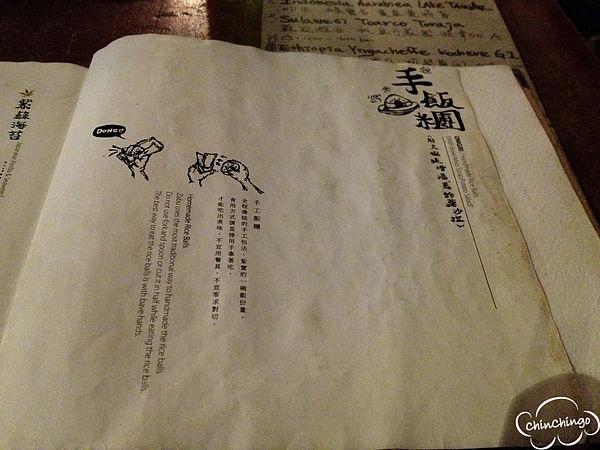 Indonesia Aarabica Lake Tawar
Sulawesi Toarco Toraja
Ethiopia Yirgacheffe Kochere G1
手飯糰
(附大根味噌湯馬鈴薯沙拉)
紫蘇海苔
DONE!!
手工飯糰
全程傳統的手工包法，紮實的一碗飯份量，
食用方式請直接用手拿著吃，
才能吃出美味，不宜用餐具，不宜要求對切。
Homemade Rice Balls
Zabu uses the most traditional way to handmade the rice balls
Do not use fork and spoon or cut it in half while eating the rice balls.
The best way to eat the rice balls is with bave hands.
chinchingo